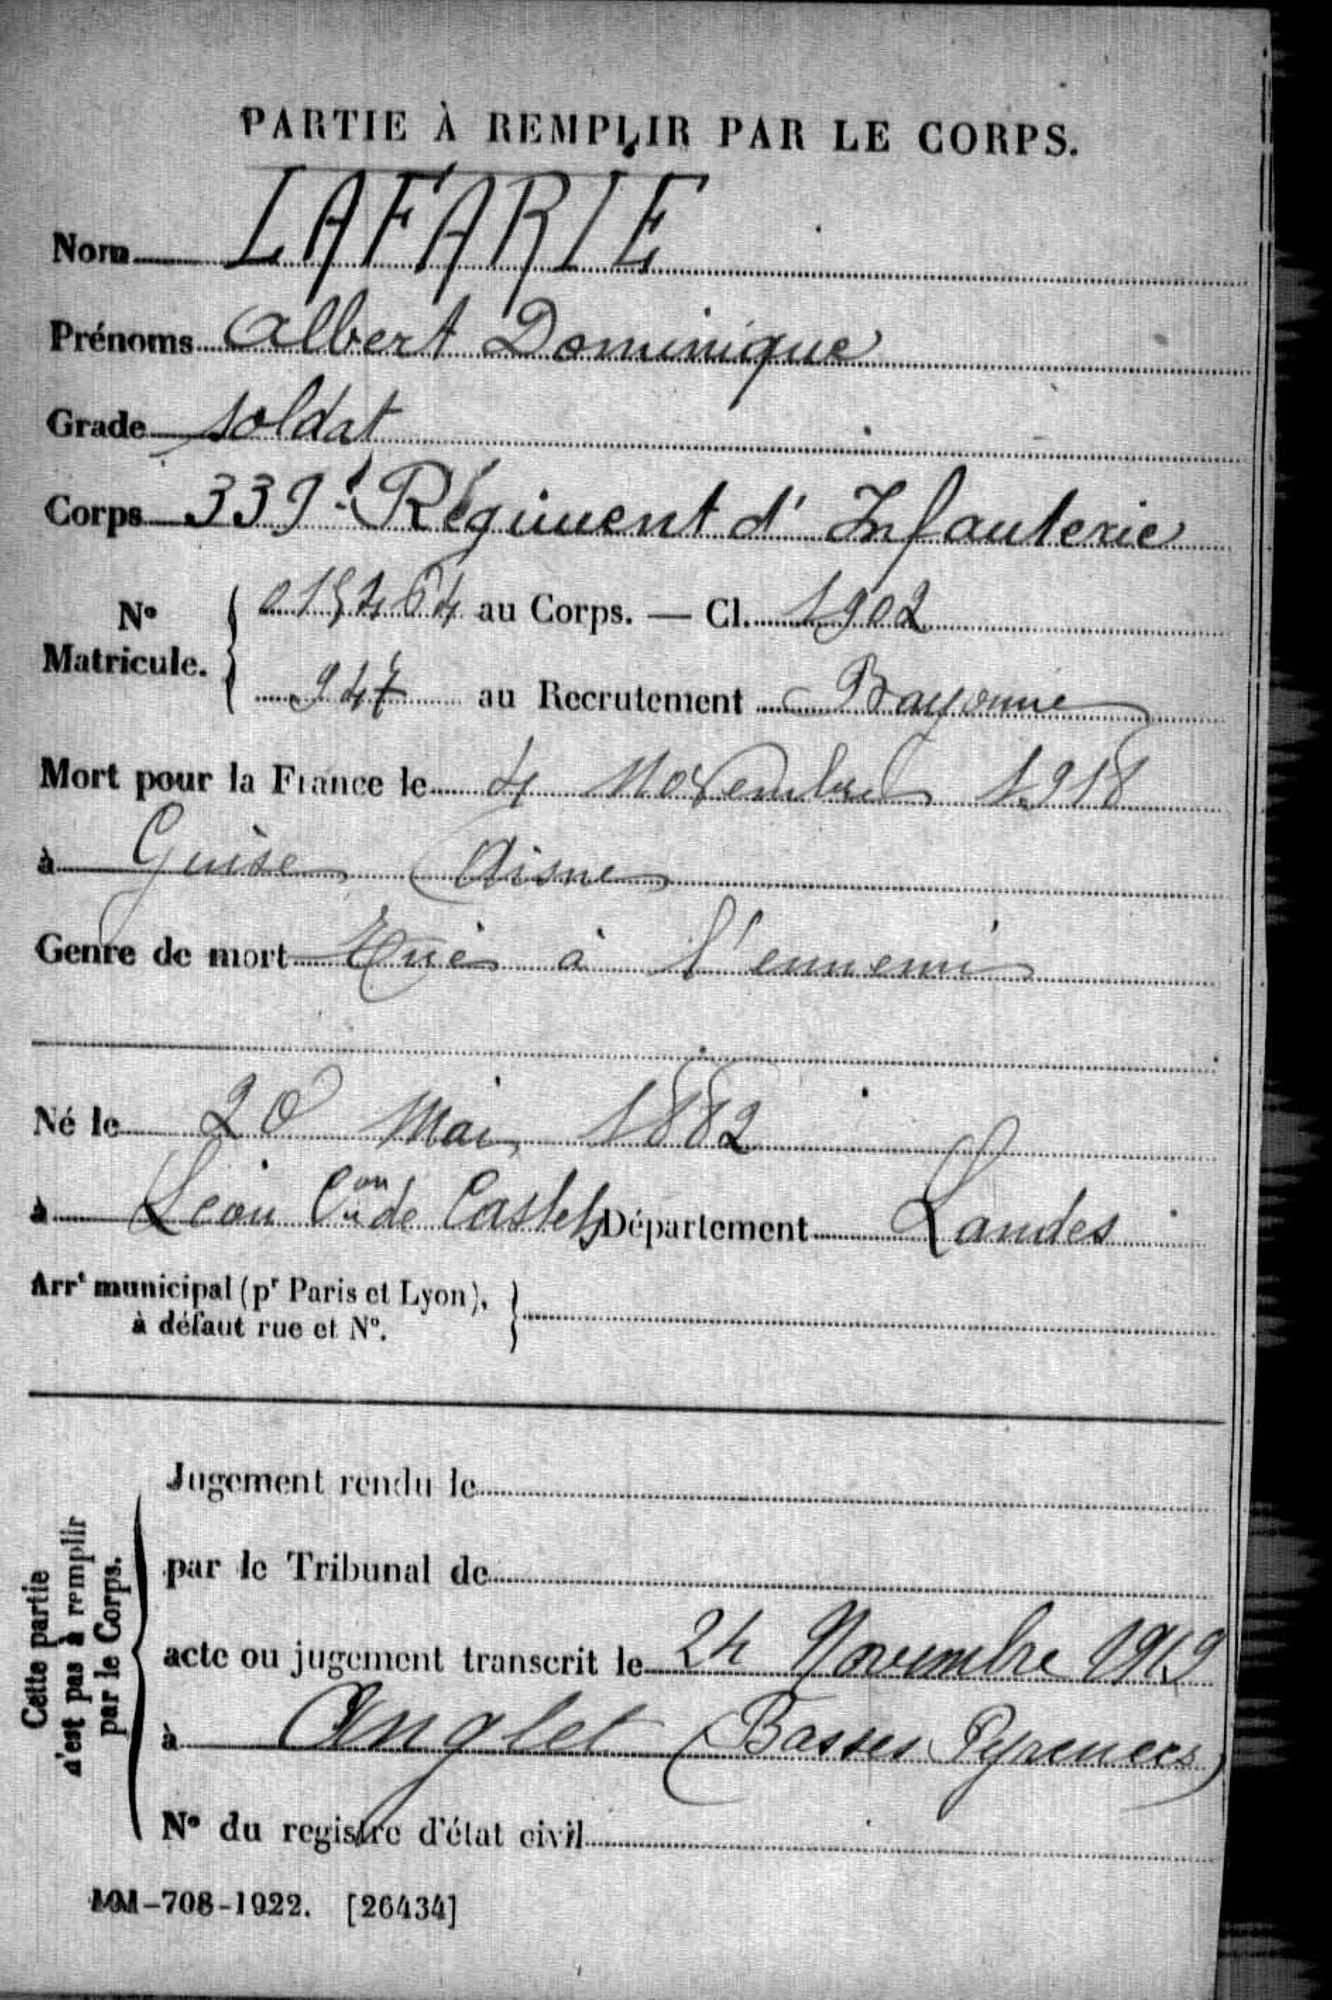 PARTIE À REMPLIR PAR LE CORPS.
Nom LAFARIE
Prénoms Albert Dominique
Grade soldat
Corps 339e Régiment d'Infanterie
No Matricule. 015464 au Corps. — Cl. 1902
947 au Recrutement Bayonne
Mort pour la France le 4 Novembre 1918
à Guise (Aisne
Genre de mort Tué à l'ennemi
Né le 20 Mai 1882
à Léon Con de Castets Département Landes
Arrt municipal (pr Paris et Lyon),
à défaut rue et No.
Cette partie
n'est pas à remplir
par le Corps.
Jugement rendu le
par le Tribunal de
acte ou jugement transcrit le 24 Novembre 1919
à Anglet (Basses Pyrenees)
No du registre d'état civil
-708-1922. [26434]